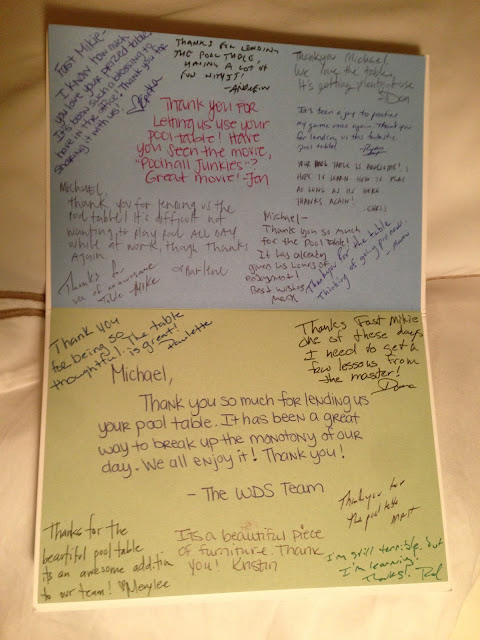 Fast Mikie-
I know how much
you love your prized table
It's been such a blessing to
have in the office! Thank you for
sharing it with us!
THANKS FOR LENDING
THE POOL TABLE,
HAVING A LOT OF
FUN WITH IT!
-ANDREW
Thank you Michael,
We love the table,
It's getting plenty of use
- Don
It's been a joy to practice
my game once again. Thank you
for lending us this fantastic
pool table!
YOUR POOL TABLE IS AWESOME! I
HOPE I LEARN HOW TO PLAY
AS LONG AS ITS HERE
THANKS AGAIN!
- CHRIS
Thank you for
Letting us use your
pool table! Have
you seen the movie,
"Poolhall Junkies"?
Great movie! -Jen
Michael,
thank you for lending us the
pool table! It's difficult not
wanting to play pool ALL DAY
while at work, though Thanks
Again.
- Darlene
Thanks for
use of an awesome
Table -Mike
Michael-
Thank you so much
for the Pool Table!
It has already
given us hours of
enjoyment!
Best wishes,
Mark
Thank you for the table
Thinking of going pro now.
Thank you
for being so
thoughtful. The table
is great!
Paulette
Thanks Fast Mikie
one of these days
I need to get a
few lessons from
the master!
Dana
Michael,
Thank you so much for lending us
your pool table. It has been a great
way to break up the monotony of our
day. We all enjoy it! Thank you!
- The WDS Team
Thank you for
the pool table
Matt
Thanks for the
beautiful pool table
its an awesome addition
to our team! Merylee
Its a beautiful piece
of furniture. Thank
you! Kristin
I'm still terrible, but
I'm learning!
Thanks!